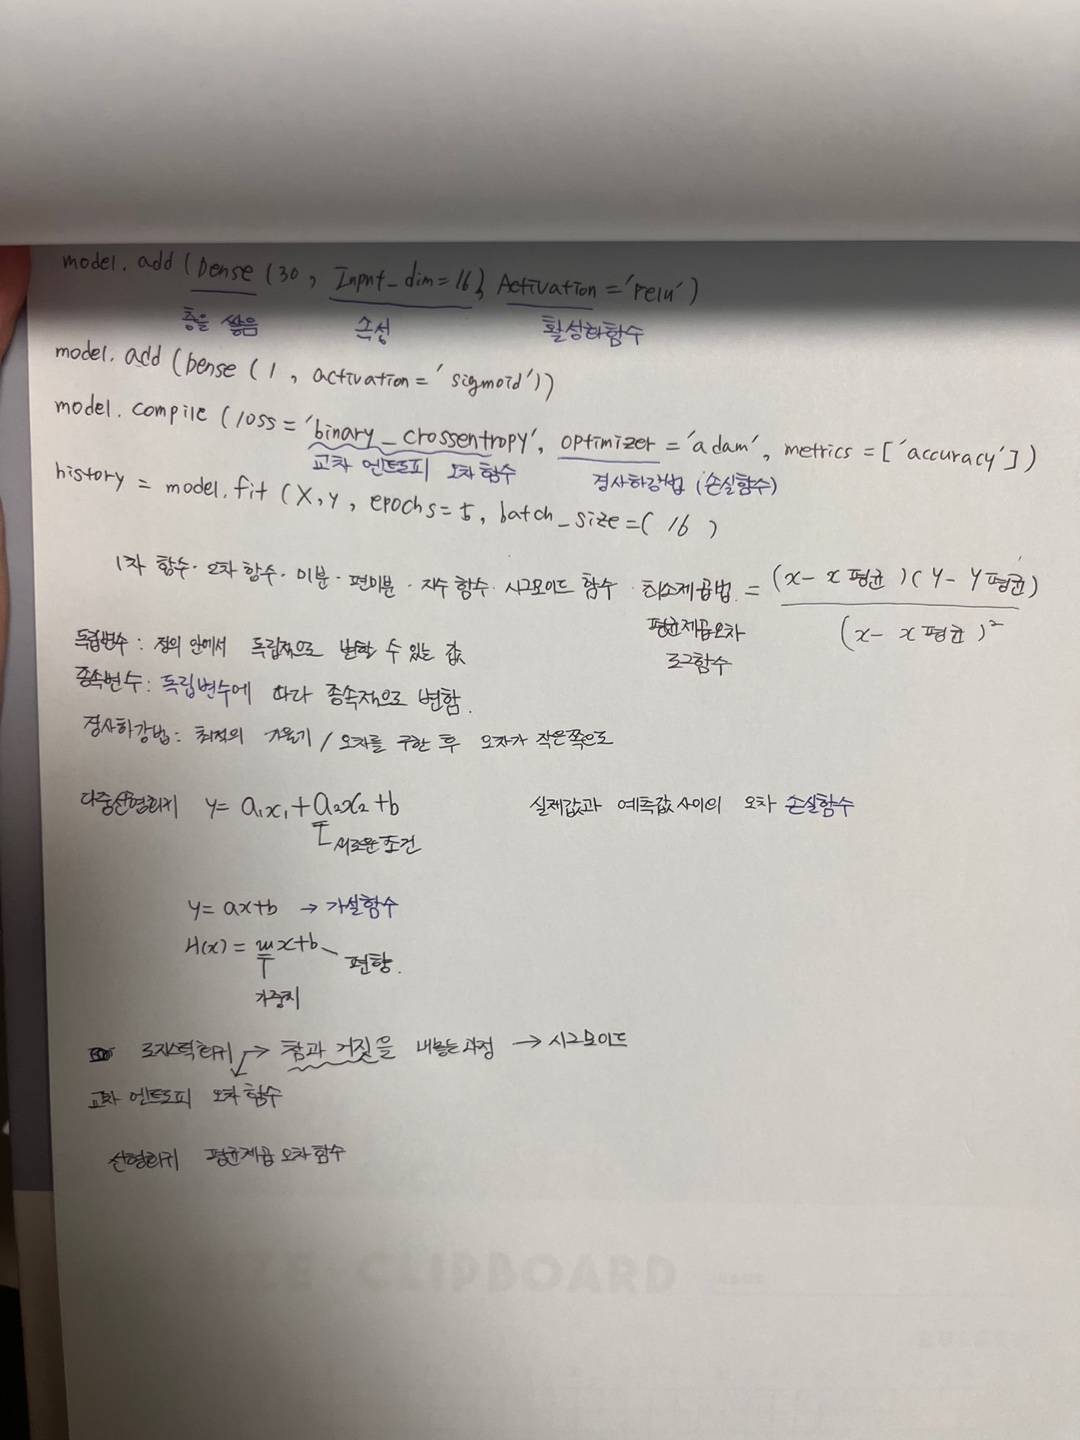 model.add(Dense(30, Input_dim=16, Activation='relu')
층을 쌓음 속성 활성화함수
model.add(Dense(1, activation='sigmoid'))
model.compile(loss='binary_crossentropy', optimizer='adam', metrics=['accuracy'])
교차 엔트로피 오차 함수 경사하강법 (손실함수)
history = model.fit(X, y, epochs=5, batch_size=(16)
1차 함수 · 오차 함수 · 미분 · 편미분 · 지수 함수 · 시그모이드 함수 · 최소제곱법 = (x - x 평균)(y - y 평균)
(x - x 평균)²
평균제곱오차
로그함수
독립변수 : 정의 안에서 독립적으로 변할 수 있는 값
종속변수 : 독립변수에 따라 종속적으로 변함.
경사하강법 : 최적의 기울기 / 오차를 구한 후 오차가 작은쪽으로
다중선형회귀 y = a₁x₁ + a₂x₂ + b 실제값과 예측값 사이의 오차 손실함수
새로운 조건
y = ax+b → 가설함수
H(x) = wx+b 편향.
가중치
로지스틱회귀 → 참과 거짓을 내놓는과정 → 시그모이드
교차 엔트로피 오차 함수
선형회귀 평균제곱 오차 함수
CLIPBOARD